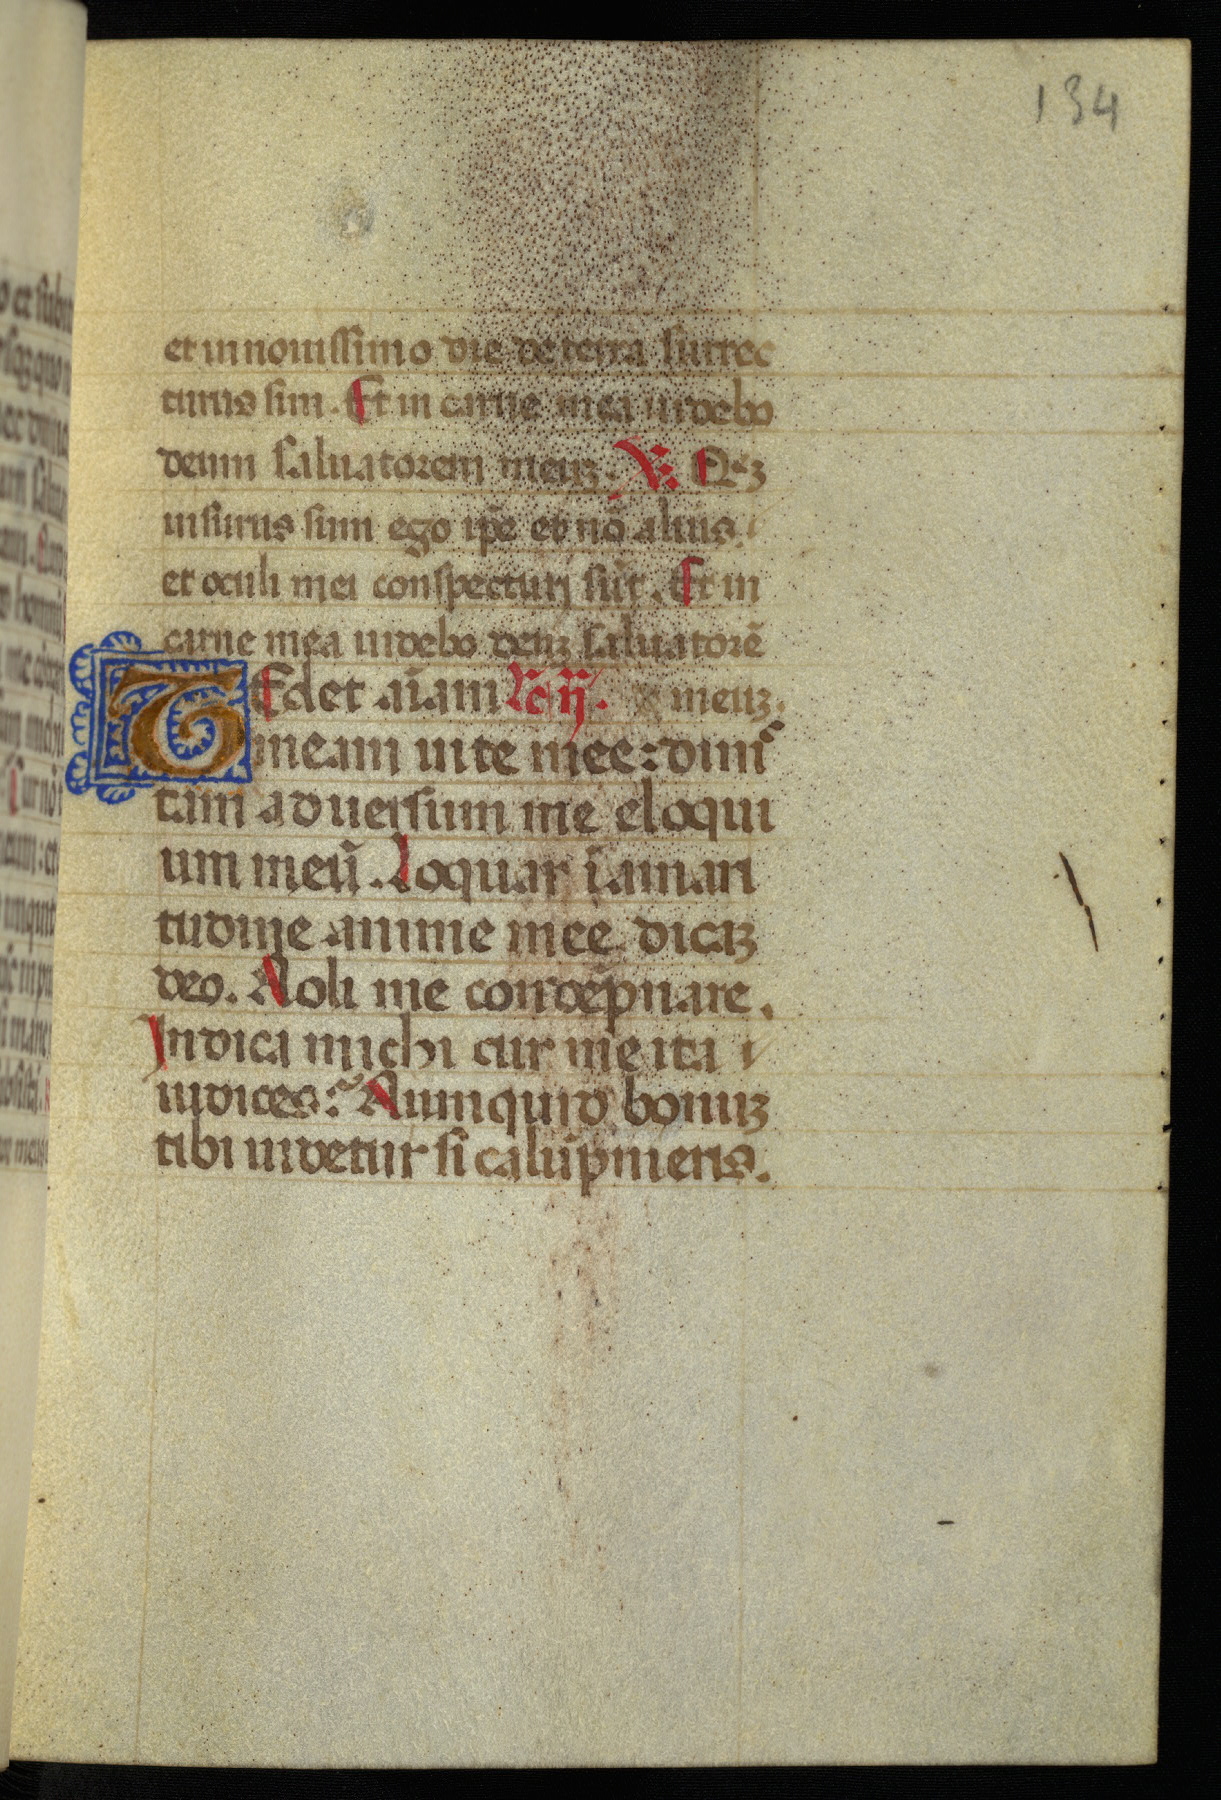 134
et in nouissimo die de terra surrec
turus sum. Et in carne mea uidebo
deum saluatorem meuꝫ. ℣. Qꝫ
uisurus sum ego ip̄e et nō alius.
et oculi mei conspecturi sūt. Et in
carne mea uidebo deuꝫ saluatorē
TEdet aīam
meuꝫ.
meam uite mee: dimi
tam aduersum me eloqui
um meū. Loquar ī amari
tudine anime mee dicaꝫ
deo. Noli me condēpnare.
Indica michi cur me ita
iudices: Numquid bonuꝫ
tibi uidetur si calūpnieris.